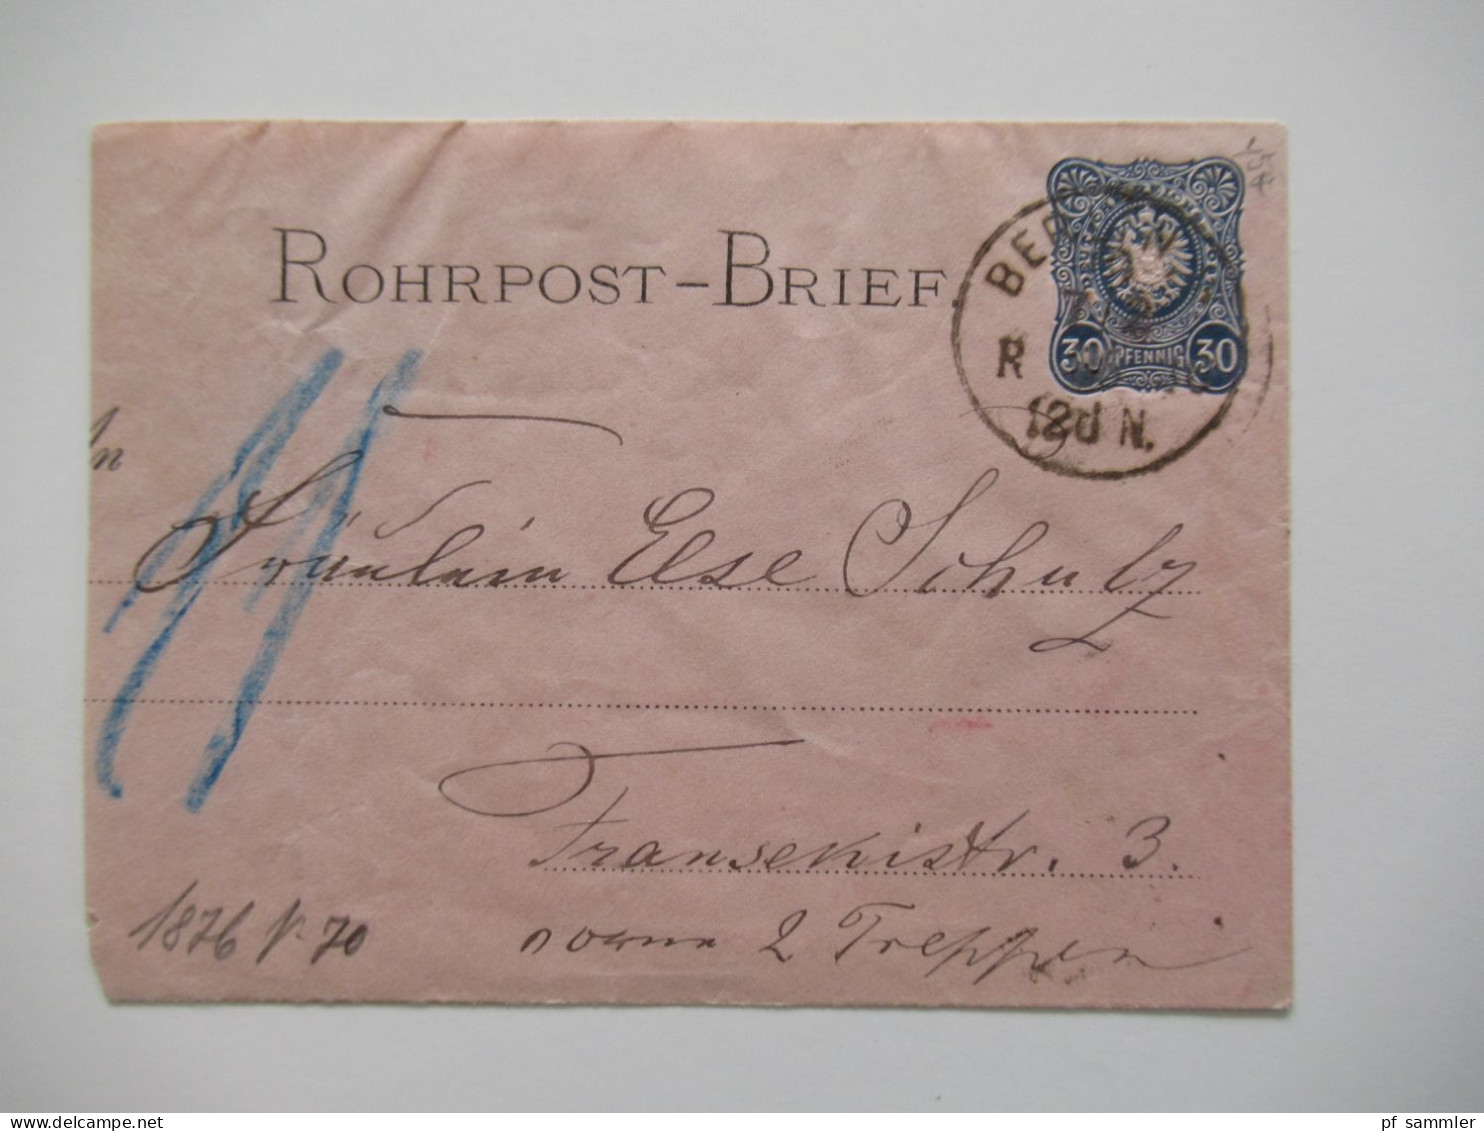 ROHRPOST-BRIEF.
30 PFENNIG 30
R
12d N.
n
Fräulein Else Schulz
Fransekistr. 3.
vorne 2 Treppen
1876
www.delcampe.net
pf sammler